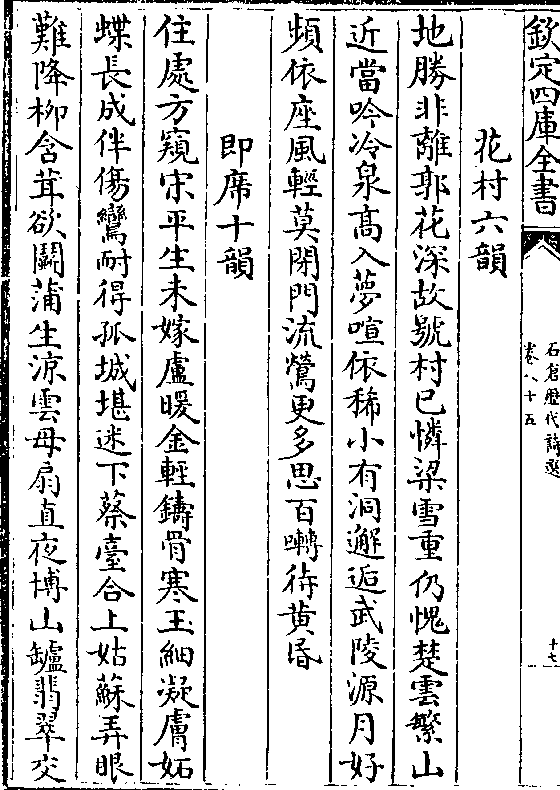 欽定四庫全書
石倉歴代詩選
卷八十五
十七
花村六韻
地勝非離郭花深故號村已憐梁雪重仍愧楚雲繁山
近當吟冷泉高入夢喧依稀小有洞邂逅武陵源月好
頻依座風輕莫閉門流鶯更多思百囀待黄昏
即席十韻
住處方窺宋平生未嫁盧暖金輕鑄骨寒玉細凝膚妬
蝶長成伴傷鸞耐得孤城堪迷下蔡臺合上姑蘇弄眼
難降柳含茸欲鬭蒲生涼雲母扇直夜博山鑪翡翠交